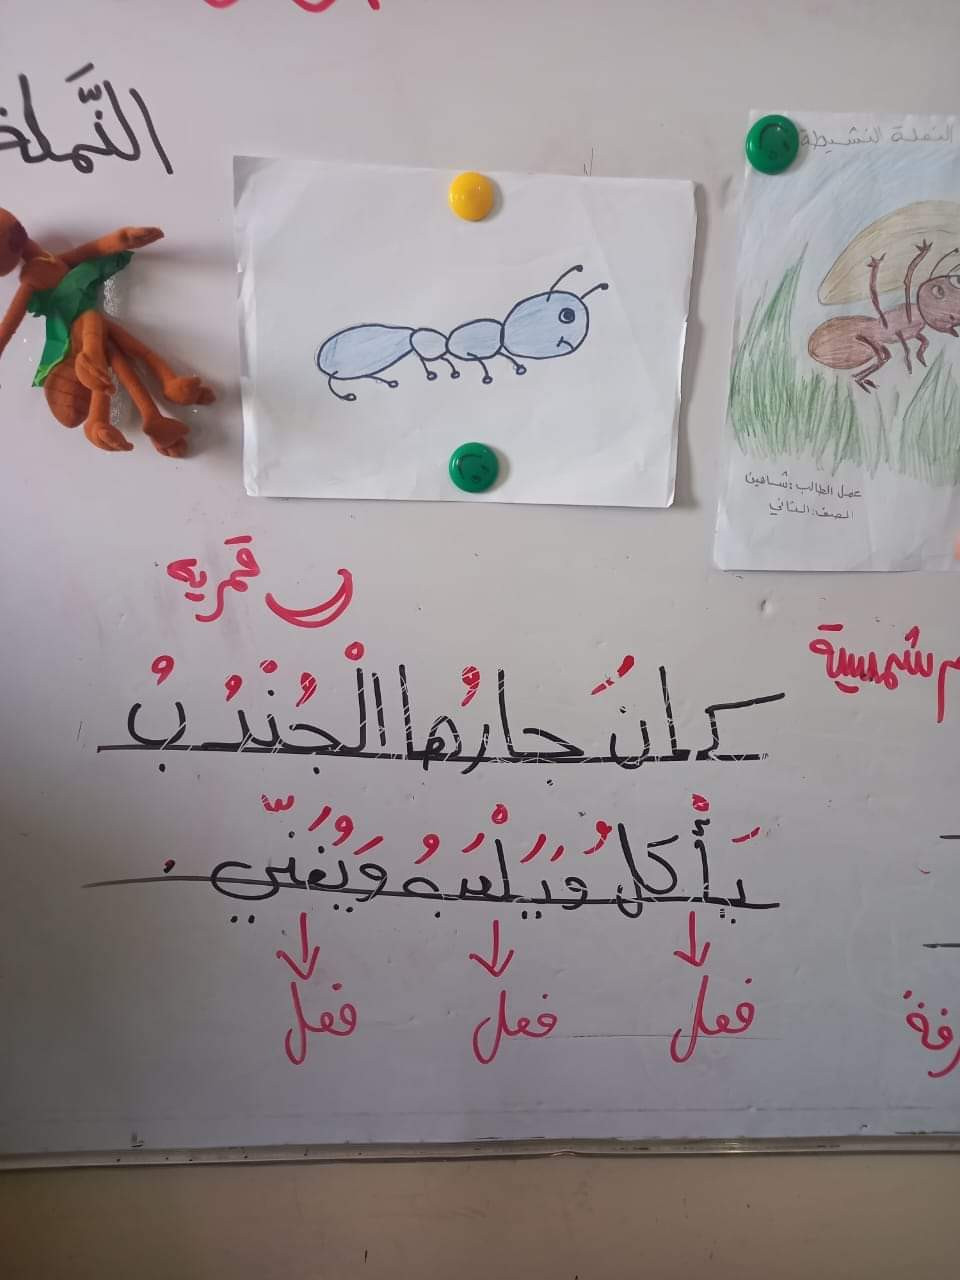 النَّملة
النملة النشيطة
عمل الطالب: شاهين
الصف: الثاني
قمريه
شمسية
كان جارُها الْجُنْدُبُ
يَأْكلُ وَيَلْعَبُ وَيُغَنّي .
فعل
فعل
فعل